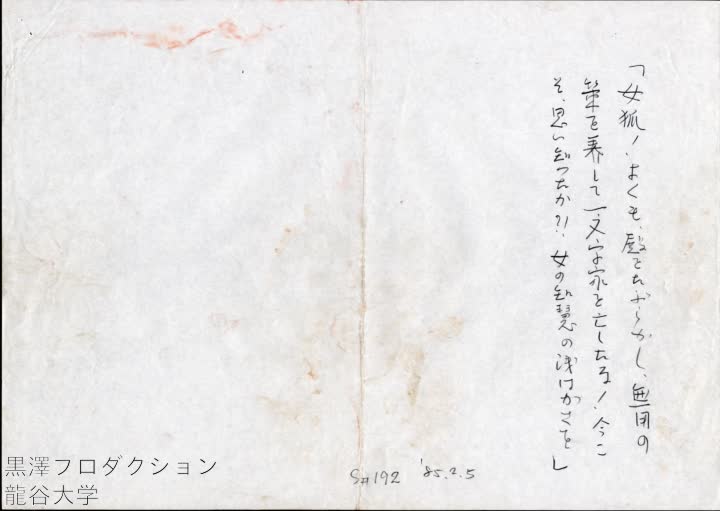 「女狐!よくも、殿をたぶらかし、無用の
策を弄して一文字家を亡したな!今こ
そ、思い知ったか?!女の知慧の浅はかさを」
S#192 '85.2.5
黒澤プロダクション
龍谷大学